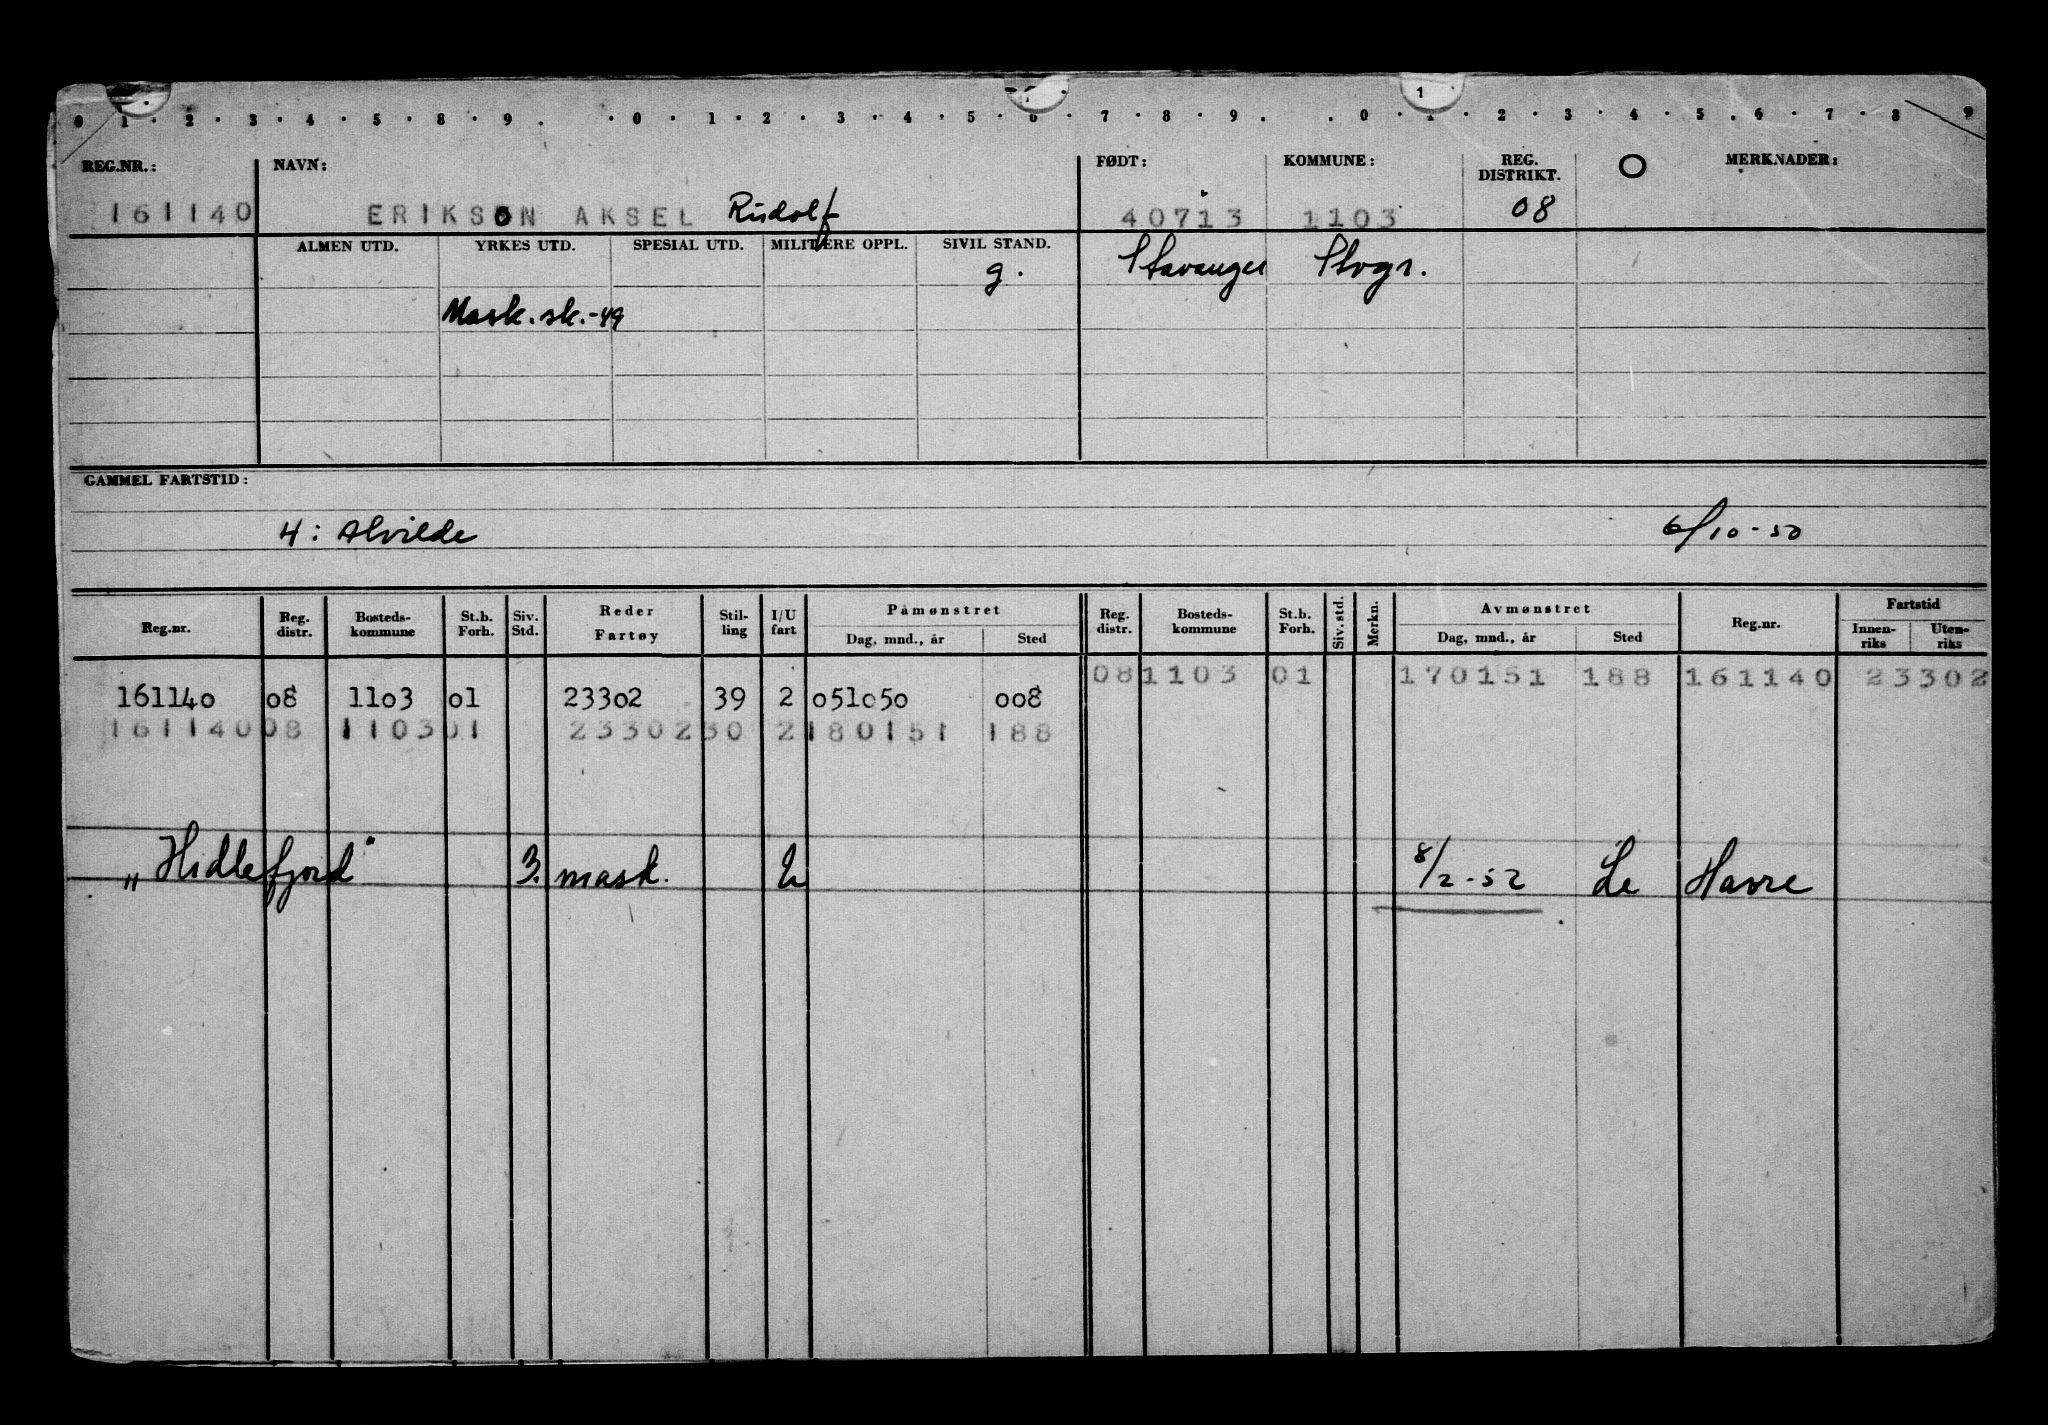 0 1 · 2 · 3 · 4 · 5 · 8 · 9 . · 0 · 1 · 2 · 3 · 4 · 5 · 6 · 7 · 8 · 9 . . 0 · 1 · 2 · 3 · 4 · 5 . 6 · 7 · 8 9
1
REG.NR.: NAVN: FØDT: KOMMUNE: REG. DISTRIKT. O MERKNADER:
161140 ERIKSON AKSEL Rudolf 40713 1103 08
ALMEN UTD. YRKES UTD. SPESIAL UTD. MILITÆRE OPPL. SIVIL STAND.
g. Stavanger Stvgr.
Mask. sk. -49
GAMMEL FARTSTID:
4: Alvilde 6/10-50
Reg.nr. Reg. distr. Bosteds-kommune St.b. Forh. Siv. Std. Reder Fartøy Stil-ling I/U fart Påmønstret Dag, mnd., år Sted Reg. distr. Bosteds-kommune St.b. Forh. Siv. std. Merkn. Avmønstret Dag, mnd., år Sted Reg.nr. Fartstid Innen-riks Uten-riks
08 1103 01 170151 188 161140 23302
161140 08 1103 01 23302 39 2 051050 008
161140 08 1103 01 23302 30 2 180151 188
"Hidlefjord" 3. mask. U 8/2-52 Le Havre